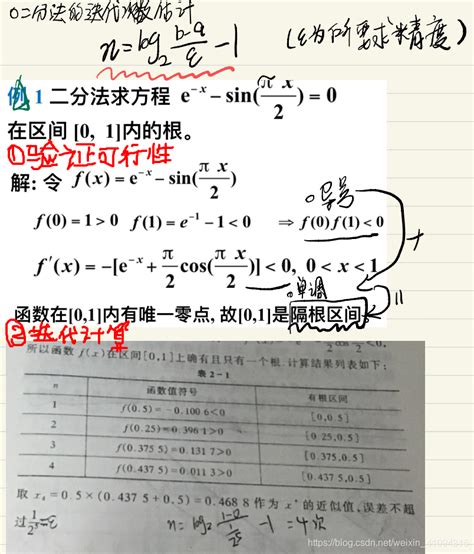 ○二分法的迭代次数估计
n=log₂ (b-a)/ε -1 (ε为所要求精度)
例1 二分法求方程 e^{-x} - sin(π x/2) = 0
在区间 [0, 1]内的根。
①验证可行性
解: 令 f(x) = e^{-x} - sin(π x/2)
○异号
f(0) = 1 > 0 f(1) = e^{-1} - 1 < 0 ⇒ f(0)f(1) < 0
+
f'(x) = -[e^{-x} + π/2 cos(π x/2)] < 0, 0 < x < 1
○单调
函数在[0,1]内有唯一零点, 故[0,1]是隔根区间。
②迭代计算
所以函数 f(x)在区间[0,1]上确有且只有一个根.计算结果列表如下:
表 2-1
n 函数值符号 有根区间
1 f(0.5) = -0.100 6<0 [0,0.5]
2 f(0.25) = 0.396 1>0 [0.25,0.5]
3 f(0.375 5) = 0.131 7>0 [0.375,0.5]
4 f(0.437 5) = 0.011 3>0 [0.437 5,0.5]
取 x₄ = 0.5 × (0.437 5 + 0.5) = 0.468 8 作为 x* 的近似值,误差不超
过 1/2⁵ =ε n = log₂ (1-0)/(1/2⁵) -1 =4次